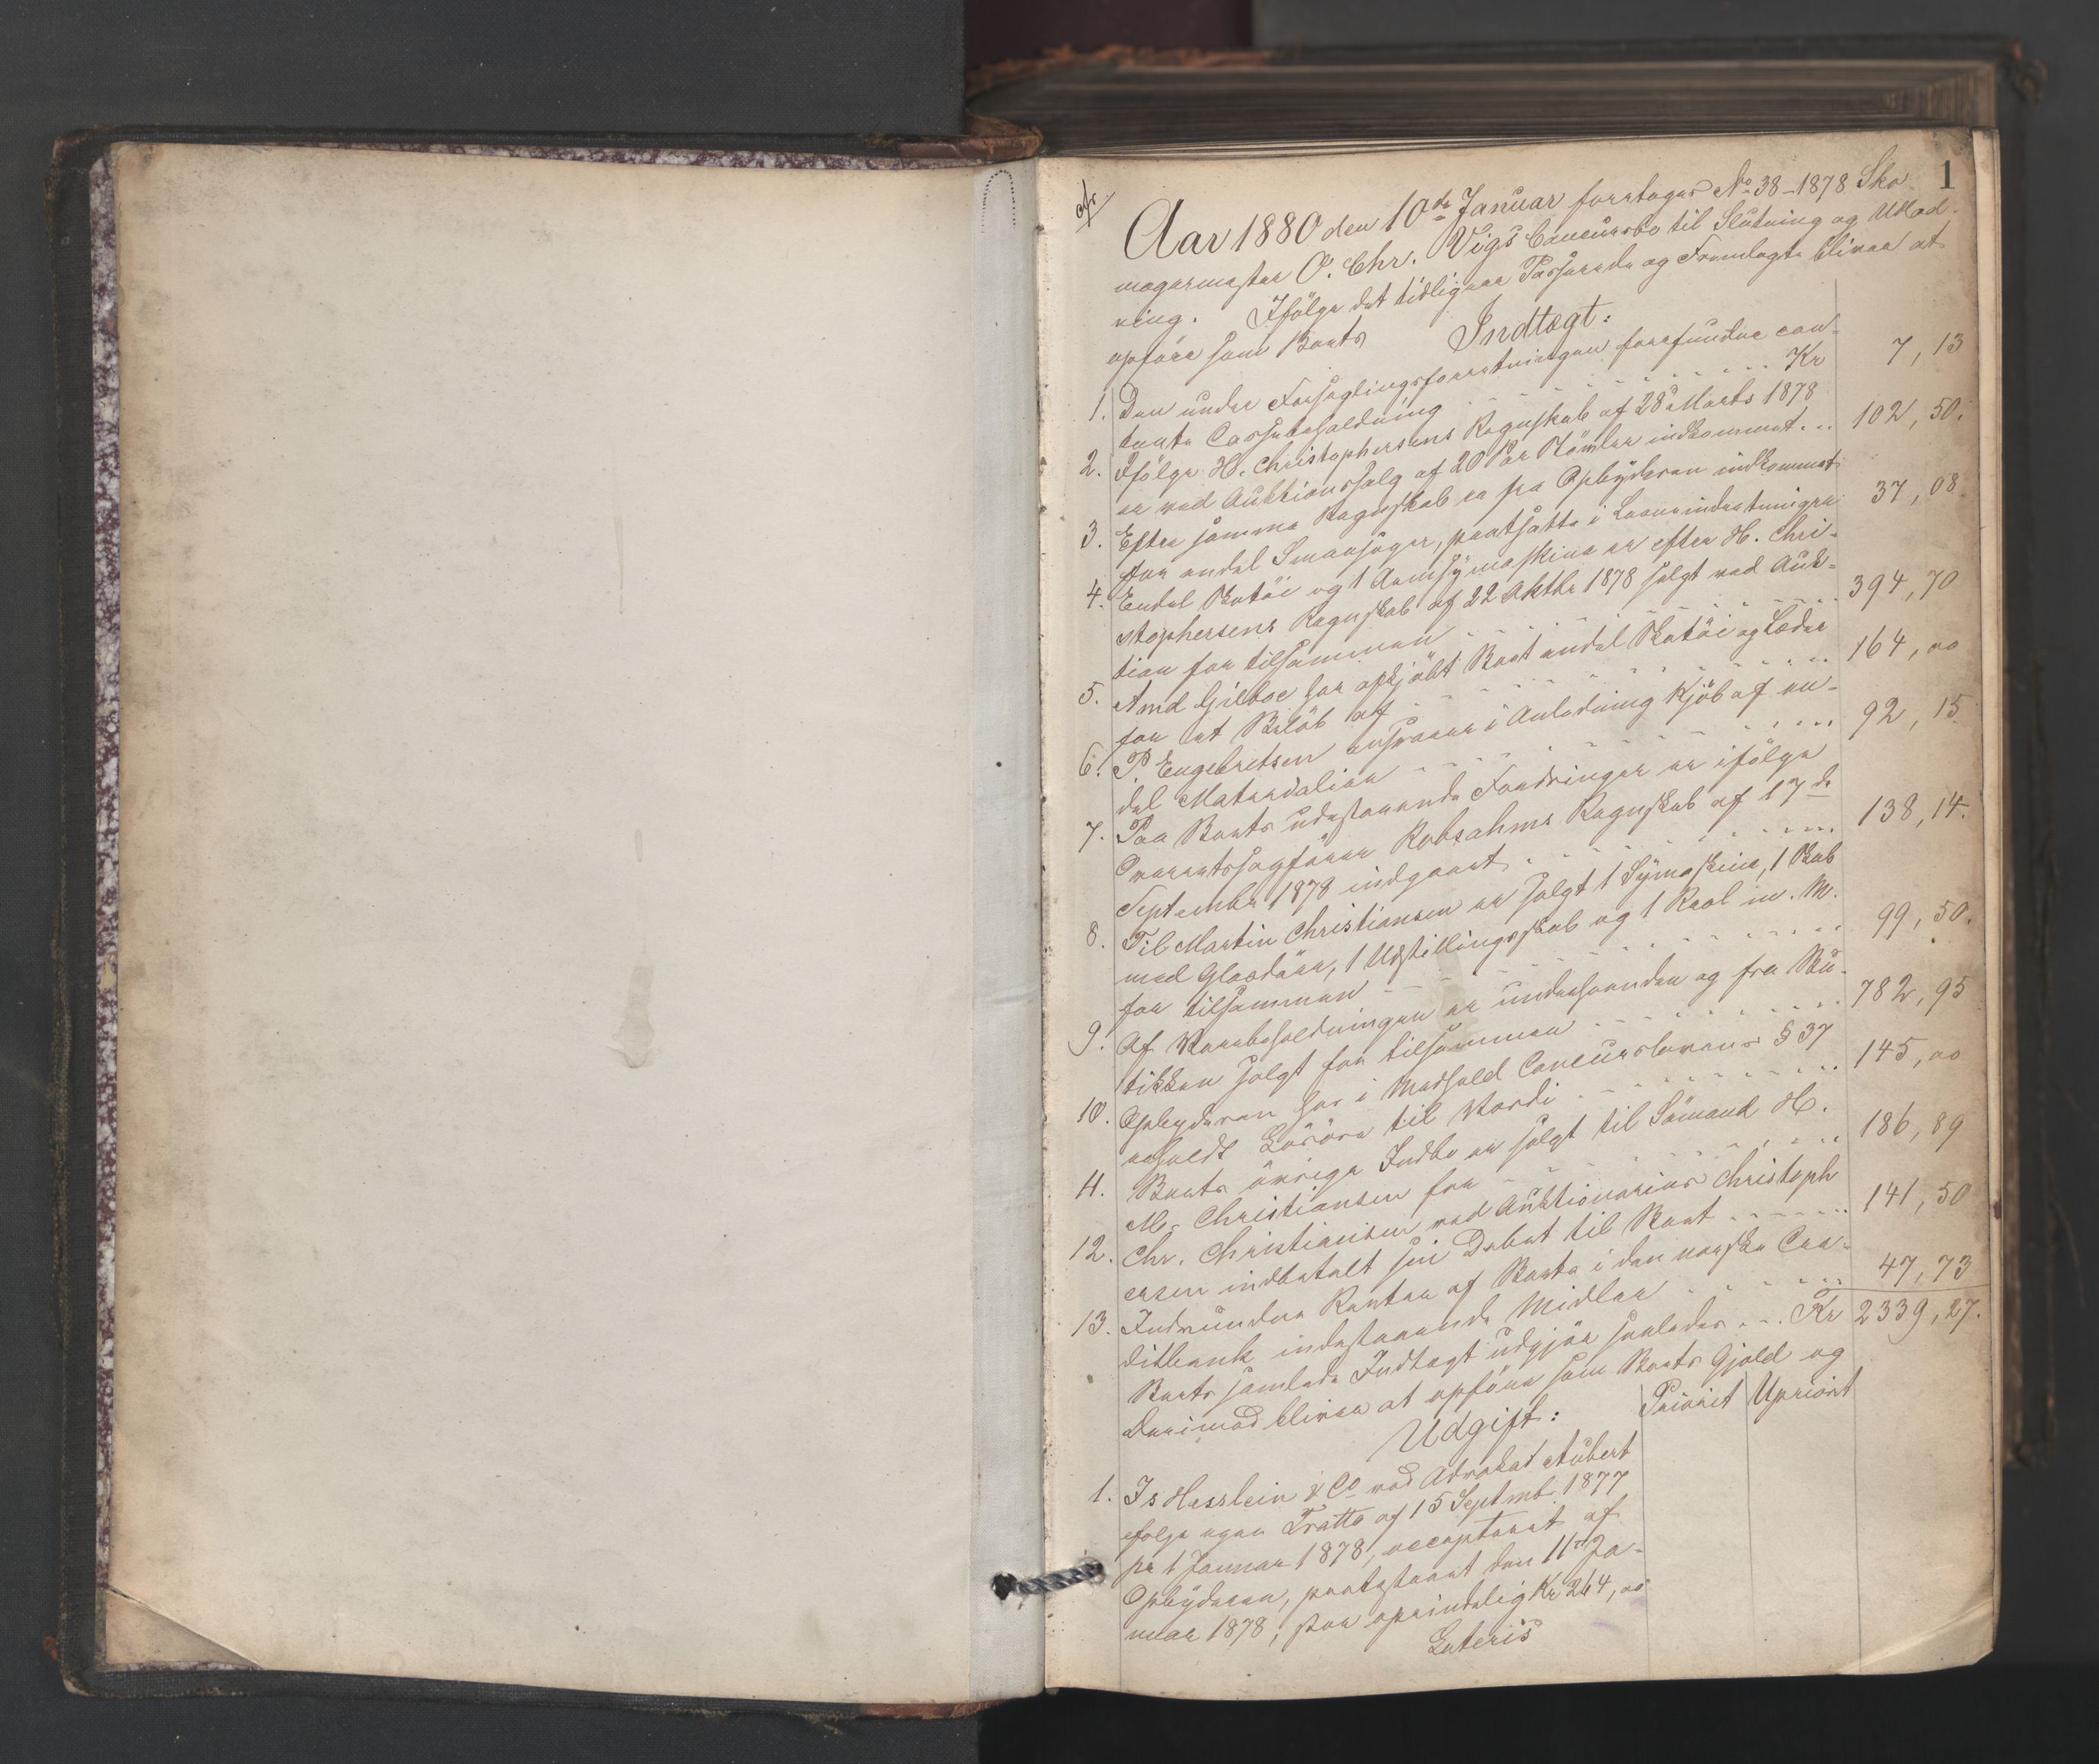 1
Aar 1880 den 10de Januar foretoges No 38-1878 Sko-
magermester O. Chr. Vigs Concursbo til Slutning og Udlod-
ning. Ifölge det tidligere Passerede og Fremlagte bliver at
opföre som Boets Indtægt:
1. Den under Forseglingsforretningen forefundne con-
tante Cassebeholdning Kr 7,13
2. Ifölge H. Christophersens Regnskab af 28 Marts 1878
er ved Auktionssalg af 20 Par Stövler indkommet 102,50.
3. Efter samme Regnskab er fra Opbyderen indkommet
for endel Smaasager, pantsatte i Laaneindretningen 37,08
4. Endel Skotöi og 1 Armsymaskine er efter H. Chri-
stophersens Regnskab af 22 Oktbr 1878 solgt ved Auk-
tion for tilsammen 394,70
5. Amd Gilboe har afkjöbt Boet endel Skotöi og Læder
for et Belöb af 164,00
6. P Engebretsen ansvarer i Anledning Kjöb af en-
del Materialier 92,15
7. Paa Boets udestaaende Fordringer er ifölge
Overretssagförer Robsahms Regnskab af 17de
September 1878 indgaaet 138,14.
8. Til Martin Christiansen er solgt 1 Symaskine, 1 Skab
med Glasdöre, 1 Udstillingsskab og 1 Reol m. M.
for tilsammen 99,50.
9. Af Varebeholdningen er underhaanden og fra Bu-
tikken solgt for tilsammen 782,95
10. Opbyderen har i Medhold Concurslovens § 37
udholdt Lösöre til Værdi 145,00
11. Boets övrige Indbo er solgt til Sömand H.
M. Christiansen for 186,89
12. Chr. Christiansen ved Auktionarius Christoph
ersen indbetalt sin Debet til Boet 141,50
13. Indvundne Renter af Boets i den norske Cre-
ditbank indestaaende Midler 47,73
Boets samlede Indtægt udgjör saaledes Kr 2339,27.
Derimod bliver at opföre som Boets Gjæld og
Udgift: Priorit Upriorit
1. Is Hesslein & Co ved Advokat Aubert
ifölge egen Tratte af 15 Septmb. 1877
pr 1 Januar 1878, accepteret af
Opbyderen, protesteret den 11te Ja-
nuar 1878, stor oprindelig Kr 264,00
Lateris